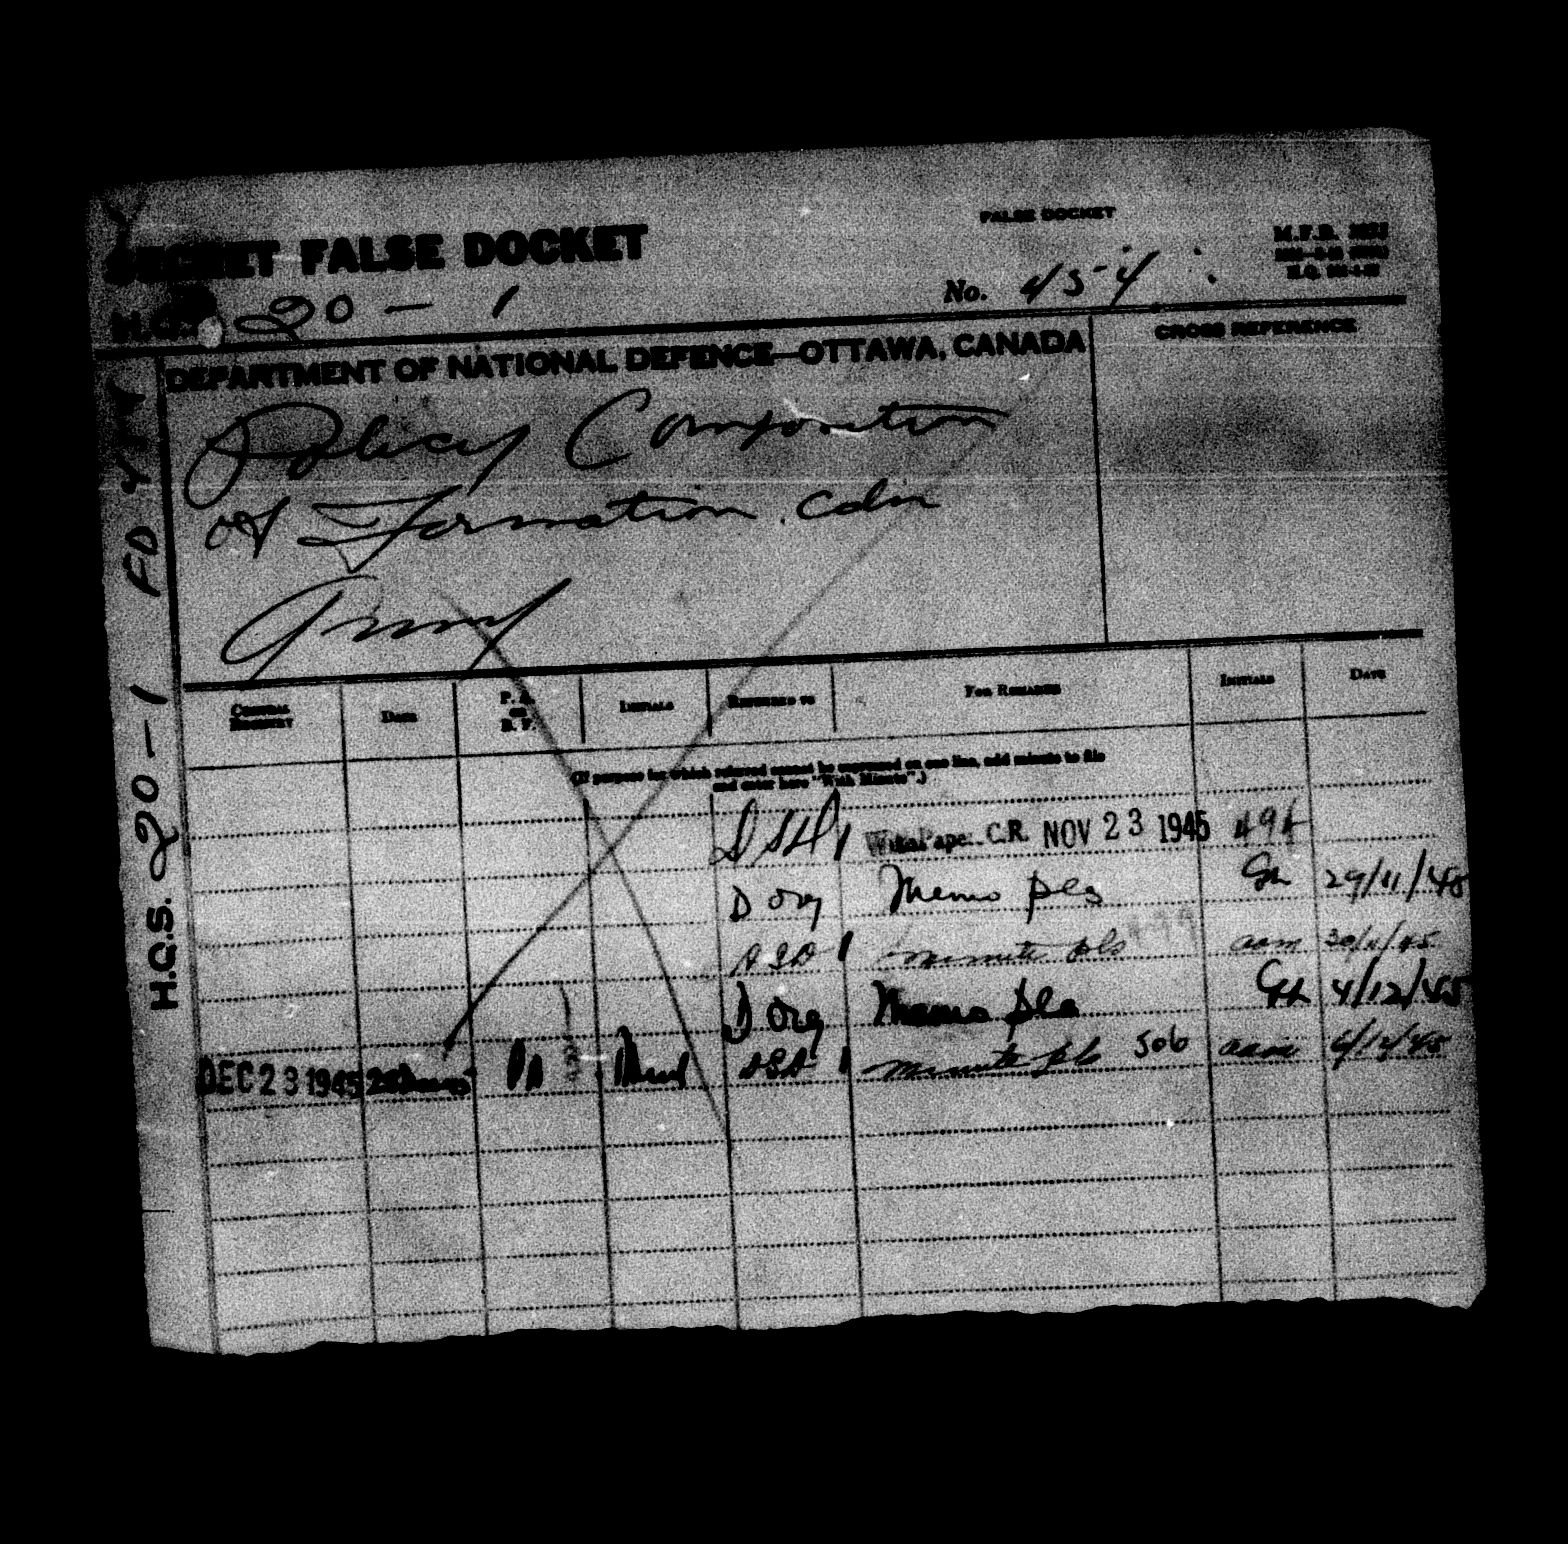 FALSE DOCKET
SECRET FALSE DOCKET
M.F.B.
No. 45-4
H.Q.S. 20-1
DEPARTMENT OF NATIONAL DEFENCE—OTTAWA, CANADA
CROSS REFERENCE
Policy Composition
of Formation. Cdn
Army
H.Q.S. 20-1 FD
Date
P.A.
or
B.F.
Initials
Referred to
For Remarks
Initials
Date
(If purpose for which referred cannot be expressed on one line, add minute to file
and enter here "With Minute".)
C.R. NOV 23 1945
D Org Memo pls 29/11/45
minute pls aam 30/11/45
D Org Memo pls 4/12/45
DEC 23 1945 minute pls aam